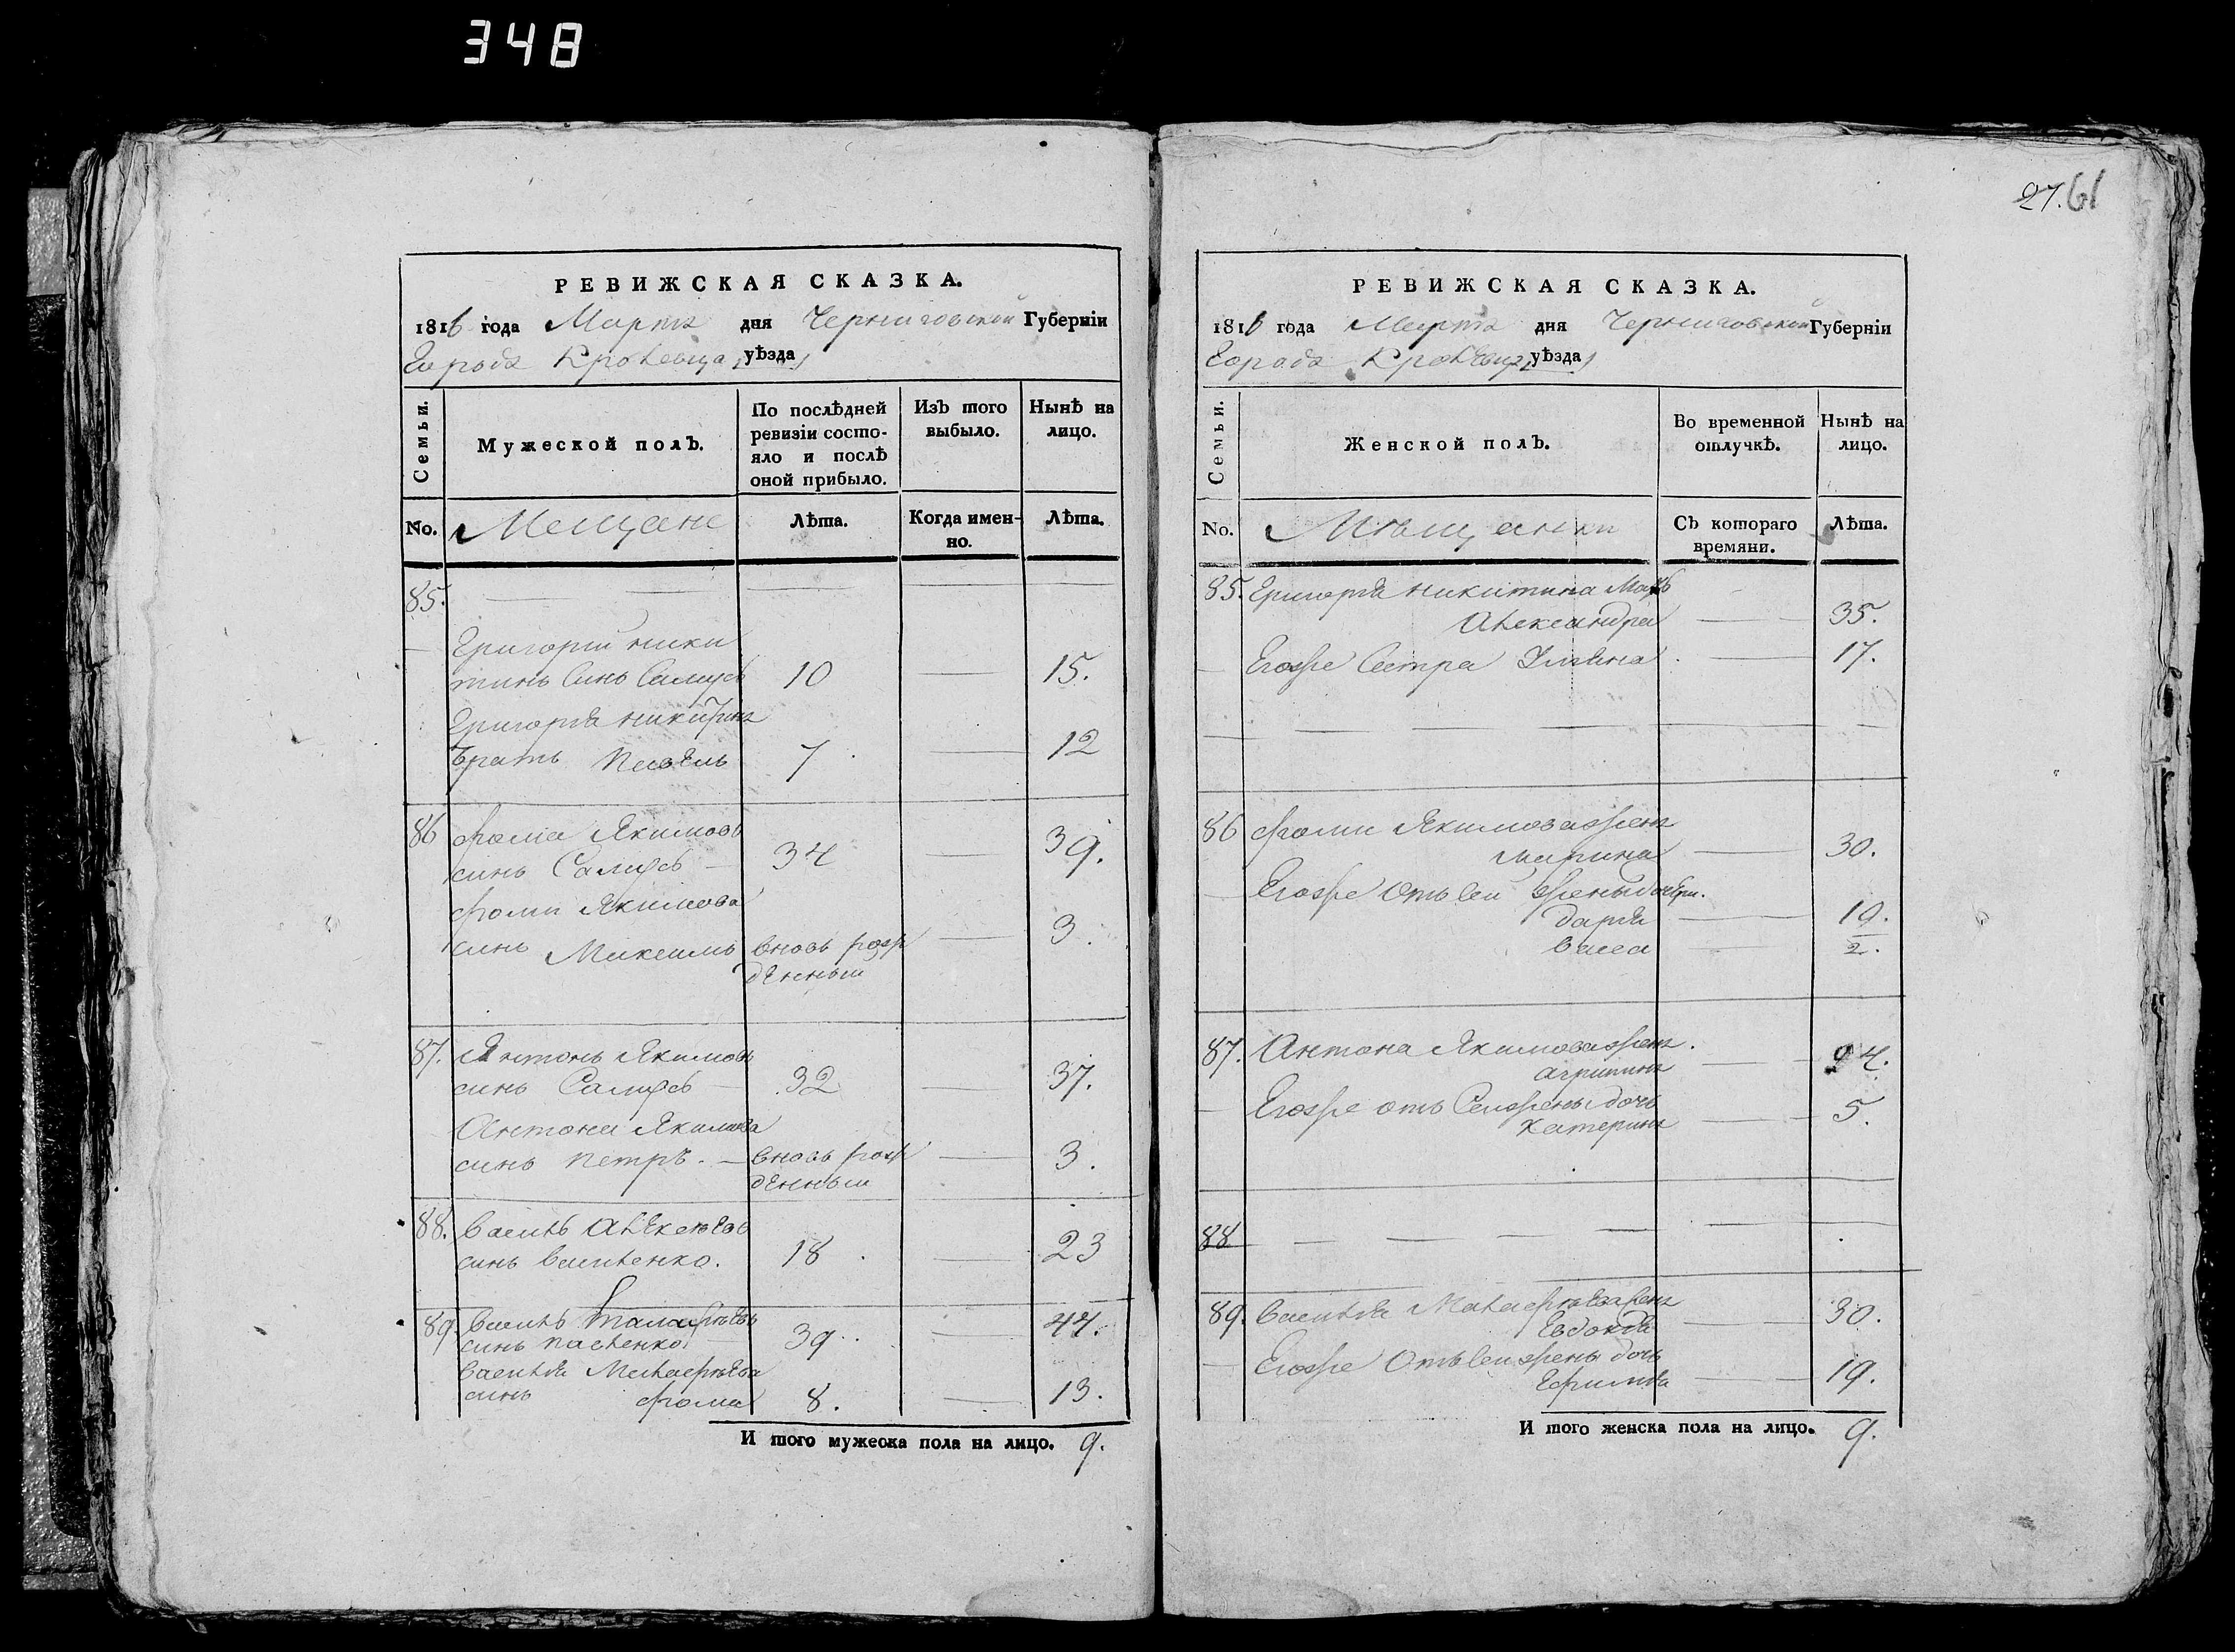 348
27. 61
РЕВИЖСКАЯ СКАЗКА.
1816 года Марта дня Черниговской Губерніи
Города Кролевца уѣзда
Семьи.
Мужеской полъ.
По послѣдней ревизіи состо-
яло и послѣ
оной прибыло.
Изъ того
выбыло.
Нынѣ на
лицо.
No. Мещане Лѣта. Когда имен-
но.
Лѣта.
85.
Григорій ники
тинъ синъ Самусь 10 15.
Григорія никитина
братъ Павелъ 7 12
86 фома Якимовъ
синъ Самусь 34 39.
фоми Якимова
синъ Максимъ вновь рож
денный 3.
87. Антонъ Якимовъ
синъ Самусь 32 37.
Антона Якимова
синъ петръ. вновь рож
денный 3.
88. василь алексѣевъ
синъ василенко. 18 23
89. василь
синъ павленко. 39 44.
василя
синъ фома 8. 13.
И того мужеска пола на лицо. 9.
РЕВИЖСКАЯ СКАЗКА.
1816 года Марта дня Черниговской Губерніи
Города Кролевца уѣзда
Семьи.
Женской полъ.
Во временной
отлучкѣ.
Нынѣ на
лицо.
No. Мѣщанки Съ котораго
времяни.
Лѣта.
85. Григорія никитина Мать
александра 35.
Егожъ Сестра Уляна 17.
86 фоми Якимова жена
марина 30.
Егоже отъ сей жены дочери.
дарья 10.
васса 2.
87. Антона Якимова жена.
агрипина 24.
Егоже отъ сей жены дочь
катерина 5.
88
89. василя жена
Евдокія 30.
Егоже отъ сей жены дочь
19.
И того женска пола на лицо. 9.